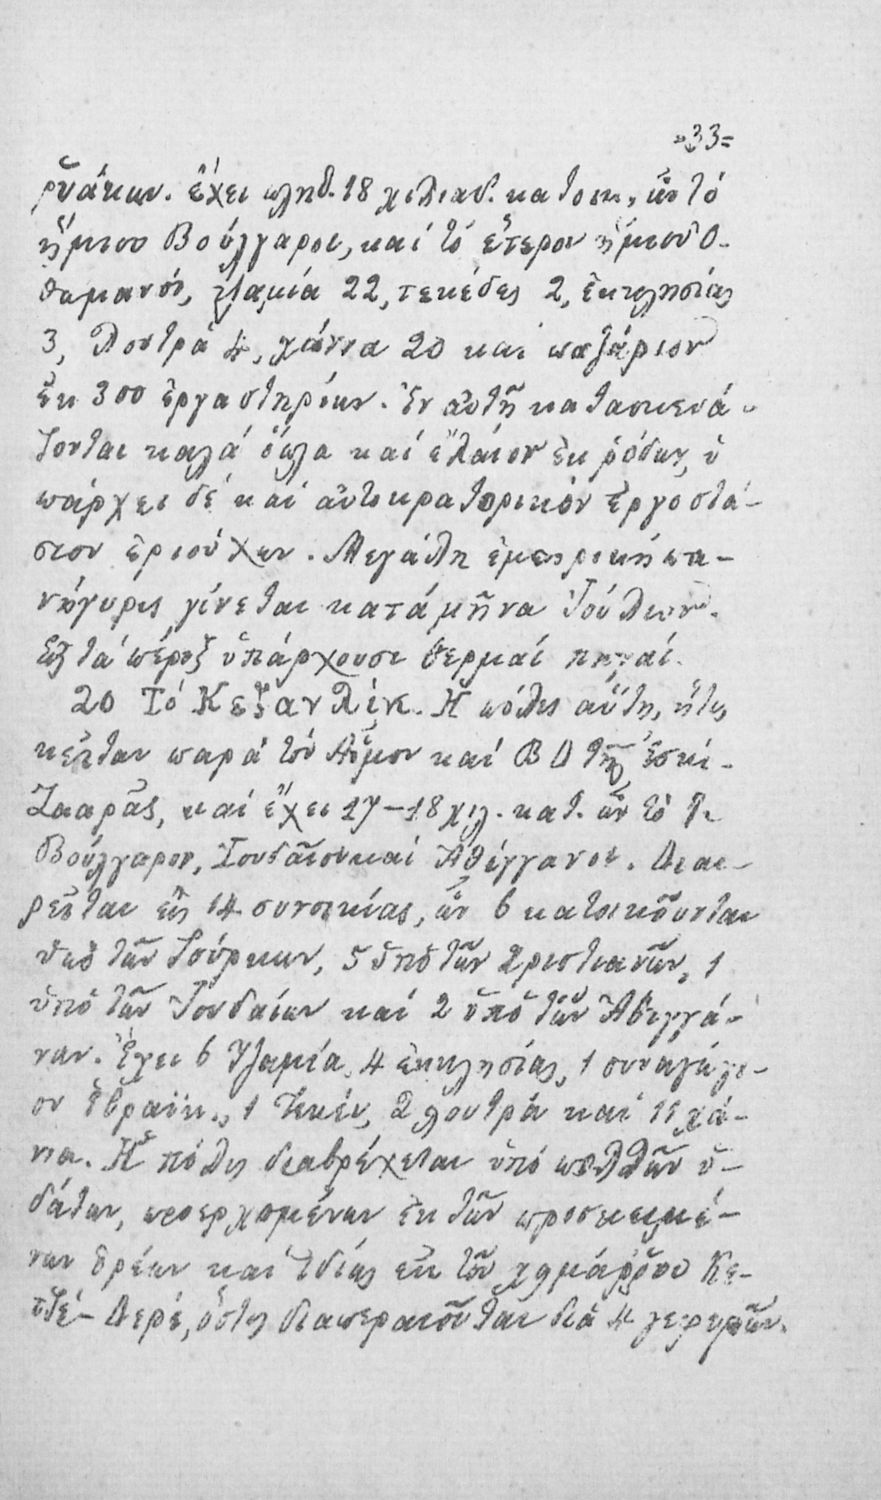 =33=
ρυάκων. ἔχει πληθ. 18 χιλιάδ. κατοικ., ὧν τό
ἥμισυ Βούλγαροι, καί τό ἕτερον ἥμισυ Ὀ-
θωμανοί, τζαμία 22, τεκέδες 2, ἐκκλησίας
3, λουτρά 4, χάννα 20 καί παζάριον
ἐκ 300 ἐργαστηρίων. Ἐν αὐτῇ κατασκευά-
ζονται καλά ὅπλα καί ἔλαιον ἐκ ρόδων, ὑ
πάρχει δέ καί αὐτοκρατορικόν ἐργοστά-
σιον ἐριούχων. Μεγάλη ἐμπορική πα-
νήγυρις γίνεται κατά μῆνα Ἰούλιον.
Εἰς τά πέριξ ὑπάρχουσι θερμαί πηγαί.
20 Τό Κεζανλίκ. Ἡ πόλις αὕτη, ἥτις
κεῖται παρά τόν Αἷμον καί ΒΔ τῆς Ἐσκί-
Ζααρᾶς, καί ἔχει 17-18 χιλ. κατ. ὧν τό
Βούλγαροι, Ἰουδαῖοι καί Ἀθίγγανοι. Διαι-
ρεῖται εἰς 14 συνοικίας, ὧν 6 κατοικοῦνται
ὑπό τῶν Τούρκων, 5 ὑπό τῶν Χριστιανῶν, 1
ὑπό τῶν Ἰουδαίων καί 2 ὑπό τῶν Ἀθιγγά-
νων. Ἔχει 6 τζαμία, 4 ἐκκλησίας, 1 συναγώγι-
ον Ἑβραϊκ., 1 τεκέν, 2 λουτρά καί 11 χά-
νια. Ἡ πόλις διαβρέχεται ὑπό πολλῶν ὑ-
δάτων, προερχομένων ἐκ τῶν προσκειμέ-
νων ὀρέων καί ἰδίας ἐκ τοῦ χειμάρρου Κε-
τζέ-Δερέ, ὅστις διαπεραιοῦται διά 4 γεφυρῶν.